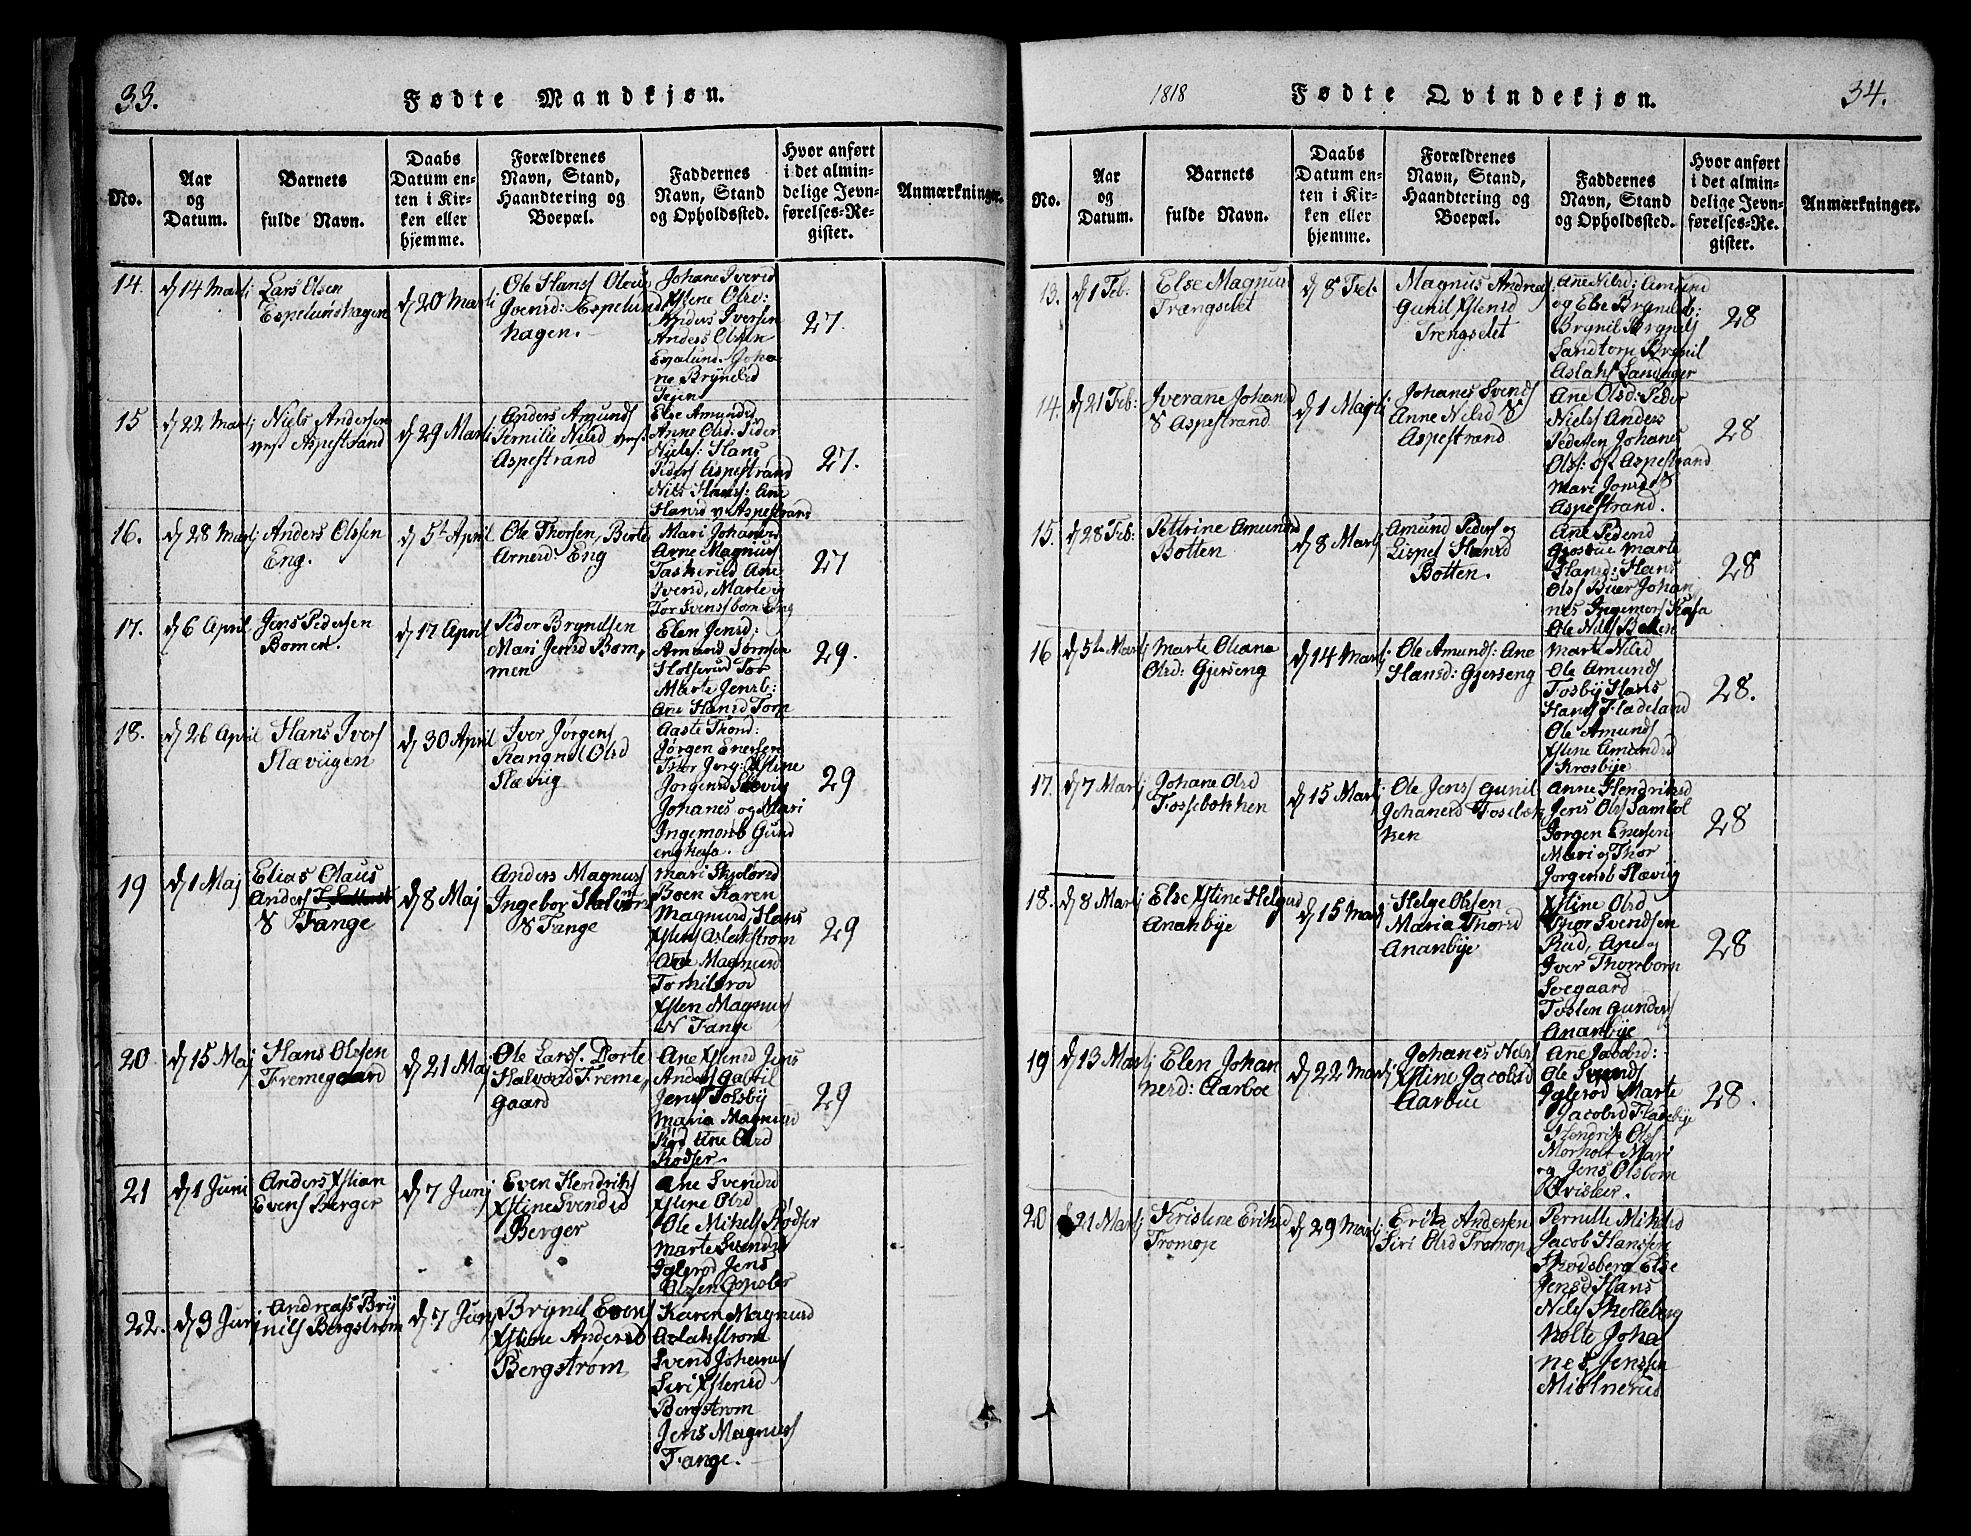 33.
Fødte Mandkjøn.
No.
Aar
og
Datum.
Barnets
fulde Navn.
Daabs
Datum en-
ten i Kir-
ken eller
hjemme.
Forældrenes
Navn, Stand,
Haandtering og
Boepæl.
Faddernes
Navn, Stand
og Opholdssted.
Hvor anført
i det almin-
delige Jevn-
førelses-Re-
gister.
Anmærkninger.
14.
d 14 Marti
Lars Olsen
Espelundshagen
d 20 Marti
Ole Hans Olaus
Espelunds
hagen.
Johane Iversd
Olsd:
Anders Iversen
Anders Olsen
Joha
ne Brynilsd
27.
15
d 22 Martj
Niels Andersen
vest Aspestrand
d 29 Marti
Anders Amunds
Pernille Nilsd vest
Aspestrand
Else Amundsd
Anne Olsd: Peder
Niels: Hans
Peders Aspestrand
Nils Hans: Ane
Hansd v Aspestrand
27.
16.
d 28 Martj
Anders Olsen
Eng.
d 5t April
Ole Thorsen, Berte
Arnesd Eng
Mari Johansd
Arne Magnus
Ane
Iversd, Marte og
Tor Svensborn Eng
27
17.
d 6 April
Jens Pedersen
Bomen.
d 17 April
Peder Bryndsen
Mari Jensd Bom,
men
Elen Jensd:
Amund
Tor
Marte Jensb:
Ane Hansd Torp
29.
18.
d 26 April
Hans Ivers
Slævigen
d 30 April
Iver Jørgens
Rangnil Olsd
Slævig
Aaste Thord:
Jørgen Enersen
Thor Jørg: Xstine
Jørgensd Slævig
Johanes og Mari
Ingemorsb Gund
enghasa.
29
19
d 1 Maj
Elias Olaus
Anders
S Tange
d 8 Maj
Anders Magnus
Ingebor Halvors
S Tange
Mari
Boen Karen
Magnusd Hans
Xstens Aslakstrøm
Ane Magnusd
Torkilsrød
Xsten Magnus
N Tange
29
20
d 15 Maj
Hans Olsen
Fremegaard
d 21 Maj
Ole Lars. Dorte
Halvorsd Freme,
gaard
Ane Xstensd Jens
Anders Gabril
Jens
Maria Magnusd
Rød Ane Olsd
Rødser.
29
21
d 1 Juni
Anders Xstian
Evens Berger
d 7 Junj
Even Hendriks
Xstine Svendsd
Berger
Ane Svendsd
Xstine Olsd
Ole Mikels Rødser
Marte Svendsd
Iglerød Jens
22.
d 3 Juni
Andreas Bry
nils Bergstrøm
d 7 Junj
Brynil Evens
Xstine Andersd
Bergstrøm
Karen Magnusd
Aslakstrøm
Svend Johanes
Siri Xstensd
Bergstrøm
Jens Magnus
Tange.
1818
Fødte Qvindekjøn.
34.
No.
Aar
og
Datum.
Barnets
fulde Navn.
Daabs
Datum en-
ten i Kir-
ken eller
hjemme.
Forældrenes
Navn, Stand,
Haandtering og
Boepæl.
Faddernes
Navn, Stand
og Opholdssted.
Hvor anført
i det almin-
delige Jevn-
førelses-Re-
gister.
Anmærkninger.
13.
d 1 Feb:
Else Magnus
Trængselet
d 8 Feb
Magnus Andreas
Gunil Xstensd
Trengselet
Ane Nilsd: Amund
og Else Brynilsb:
Brynil Brynils
Sandtorp Brynil
Aslaks Sandager
28
14.
d 21 Feb:
Iverane Johansd
S Aspestrand
d 1 Martj
Johanes Svends
Anne Nilsd S
Aspestrand
Ane Olsd: Peder
Niels Anders
Pedersen Johanes
Ols: øst Aspestrand
Mari Jonsd S
Aspestrand.
28
15.
d 28 Feb:
Pettrine Amundsd
Botten
d 8 Martj
Amund Peders og
Lispet Hansd
Botten.
Ane Pedersd
Marte
Hansd: Hans
Ols Buer Johan
nes Ingemors Kasa
Ole Nils Botten
28
16
d 5te Martj
Marte Oliana
Olsd: Gjerseng
d 14 Martj
Ole Amunds: Ane
Hansd: Gjerseng
Marte Nilsd
Ole Amunds
Fosby Hans
Hans Fladeland
Ole Amunds
Xstine Amundsd
Krosbye
28.
17.
d 7 Martj
Johane Olsd
Fossebekken
d 15 Martj
Ole Jens Gunil
Johanesd Fossebek
ken
Anne Hendriksd
Jens Ols Sambøl
Jørgen Enersen
Mari og Thor
Jørgensb Slævig
28
18.
d 8 Martj
Else Xstine Helgesd
Ananbye
d 15 Martj
Helge Olsen
Maria Thorsd
Ananbye
Xstine Olsd
Thor Svendsen
Rud, Ane og
Iver Thorsborn
Svegaard
Tosten Gunders
Ananbye
28
19
d 13 Martj
Elen Johan
nesd: Aarboe
d 22 Martj
Johanes Nils
Xstine Jacobsd
Aarbue
Ane Jacobsd:
Ole Svends
Iglerød Marte
Jacobsd Fladebye
Hendrik Ols
Morholt Mari
og Jens Olsborn
Qvisler.
28.
20
d 21 Martj
Kristine Eriksd
Tromop
d 29 Martj
Erik Andersen
Siri Olsd Tromop
Pernille Mikelsd
Jacob Hansen
Skodsberg Else
Jensd Hans
Nils Skolleborg
Holte Joha
nes Jensen